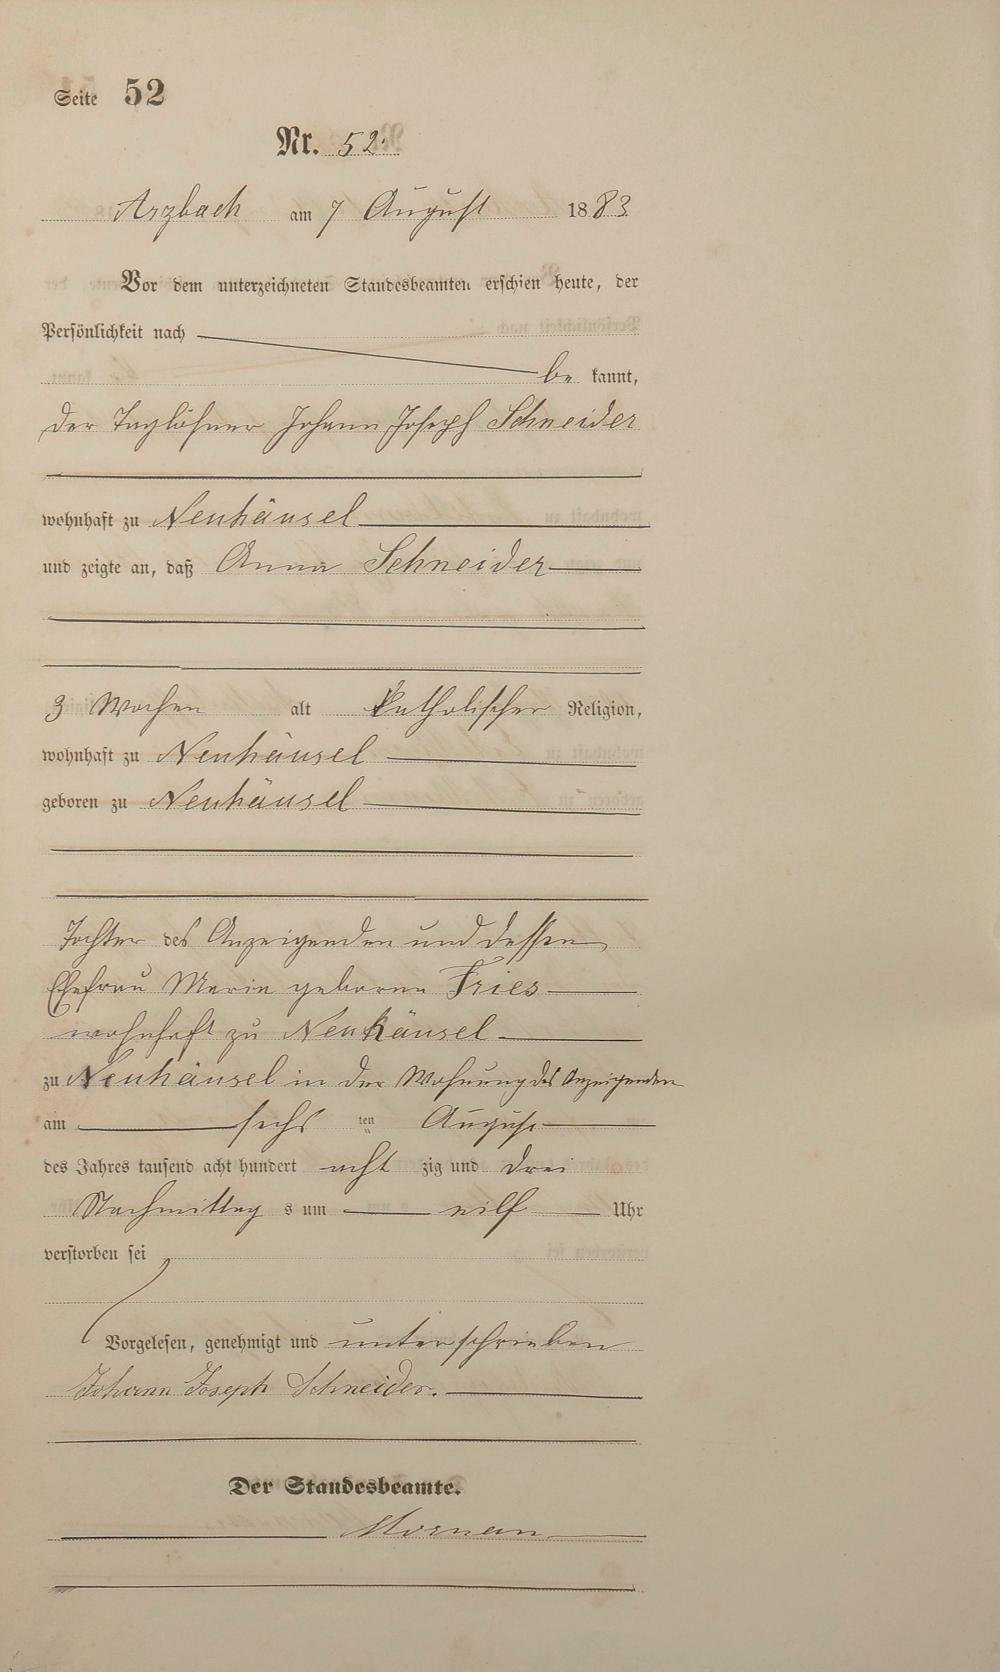 Seite 52
Nr. 52.
Arzbach am 7 August 1883
Vor dem unterzeichneten Standesbeamten erschien heute, der
Persönlichkeit nach
be kannt,
der Taglöhner Johann Joseph Schneider
wohnhaft zu Neuhäusel
und zeigte an, daß Anna Schneider
3 Wochen alt katholischer Religion,
wohnhaft zu Neuhäusel
geboren zu Neuhäusel
Tochter des Anzeigenden und dessen
Ehefrau Maria geborne Fries
wohnhaft zu Neuhäusel
zu Neuhäusel in der Wohnung des Anzeigenden
am sechs ten August
des Jahres tausend acht hundert acht zig und drei
Nachmittag s um eilf Uhr
verstorben sei
Vorgelesen, genehmigt und unterschrieben
Johann Joseph Schneider.
Der Standesbeamte.